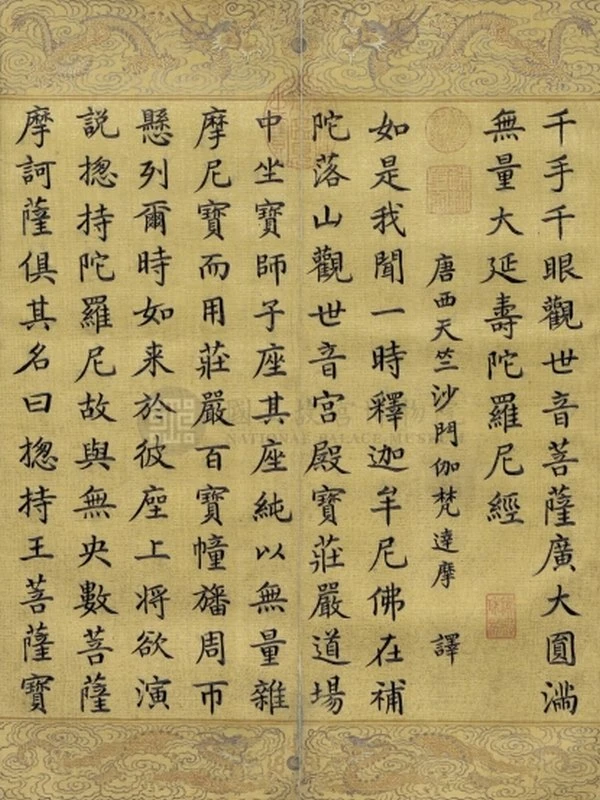 千手千眼觀世音菩薩廣大圓滿
無量大延壽陀羅尼經
唐西天竺沙門伽梵達摩　譯
如是我聞一時釋迦牟尼佛在補
陀落山觀世音宮殿寶莊嚴道場
中坐寶師子座其座純以無量雜
摩尼寶而用莊嚴百寶幢旛周帀
懸列爾時如来於彼座上將欲演
説揔持陀羅尼故與無央數菩薩
摩訶薩俱其名曰揔持王菩薩寶
NATIONAL PALACE MUSEUM